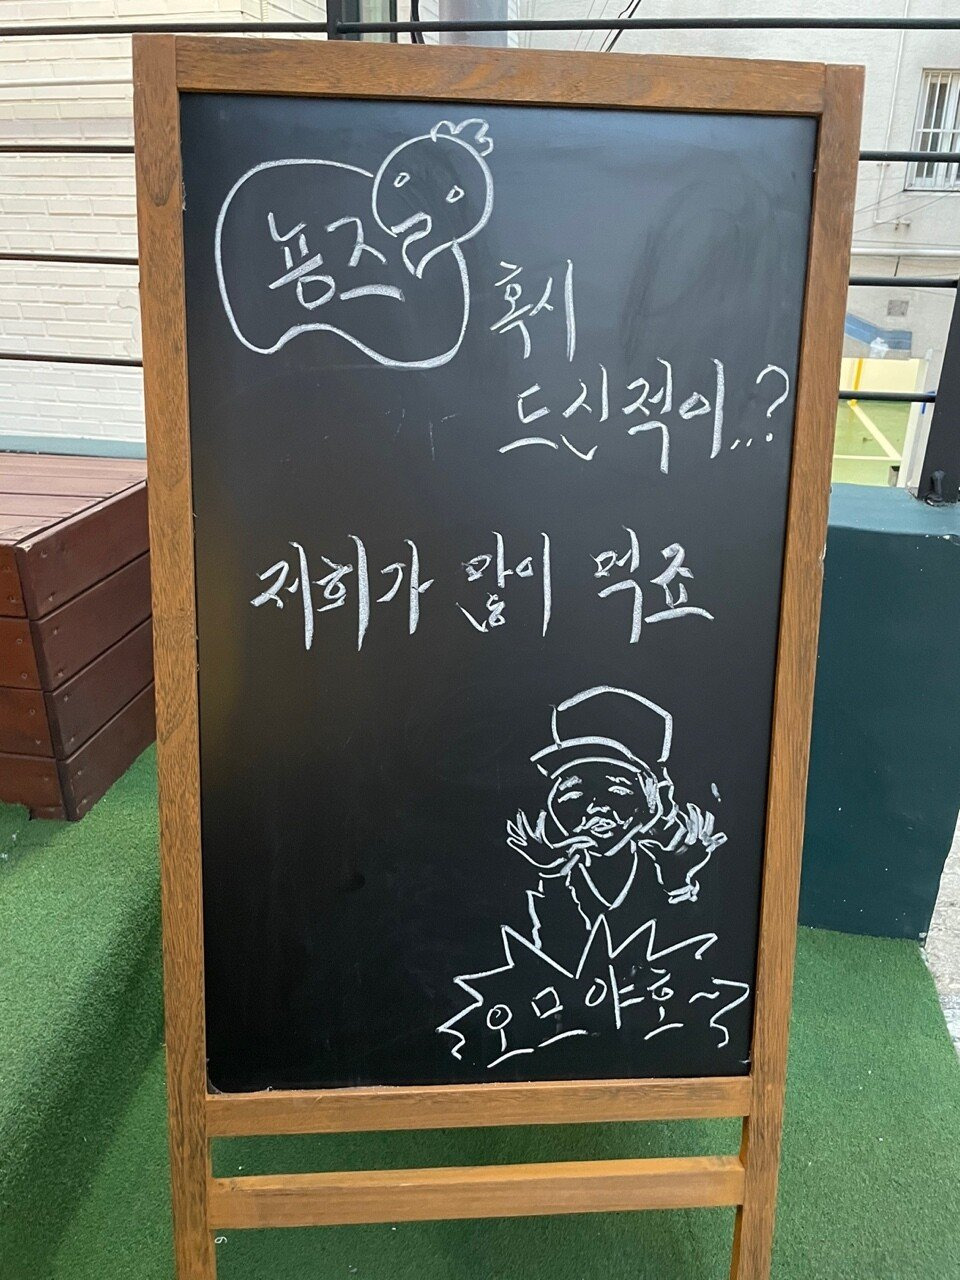 용즈
혹시
드신적이...?
저희가 많이 먹죠
오므야호~